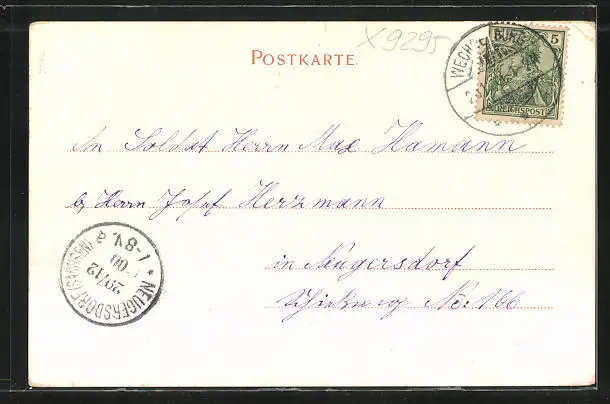 X9295
POSTKARTE.
5
REICHSPOST
An Soldat Herrn Max Hamann
b. Herrn Josef Herzmann
in Neugersdorf
No: 166
* NEUGERSDORF (SACHSEN) a
29/12
00
7-8V.